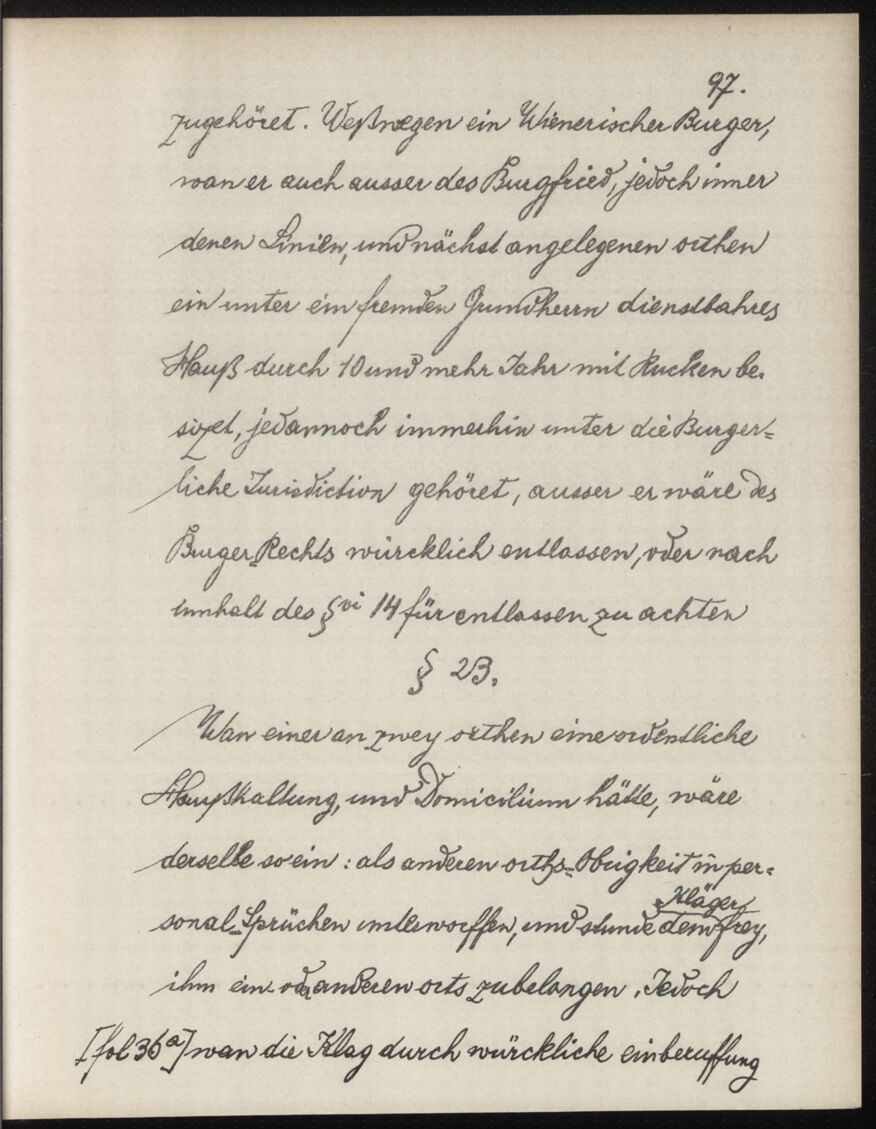 97.
zugehöret. Weßwegen ein Wienerischer Burger,
wan er auch ausser des Burgfried, jedoch inner
denen Linien, und nächst angelegenen orthen
ein unter ein fremden Grundherrn dienstbahres
Hauß durch 10 und mehr Jahr mit Rucken be-
sizet, jedannoch immerhin unter die Burger-
liche Jurisdiction gehöret, ausser er wäre des
Burger-Rechts würcklich entlassen, oder nach
innhalt des §vi 14 für entlassen zu achten
§ 23.
Wan einer an zwey orthen eine ordentliche
Haußhaltung, und Domicilium hätte, wäre
derselbe so ein: als anderen orths-Obrigkeit in per-
sonal-Sprüchen unterworffen, und stunde dem Kläger frey,
ihm ein- oder anderen orts zubelangen. Jedoch
[fol 36a] wan die Klag durch würckliche einberuffung